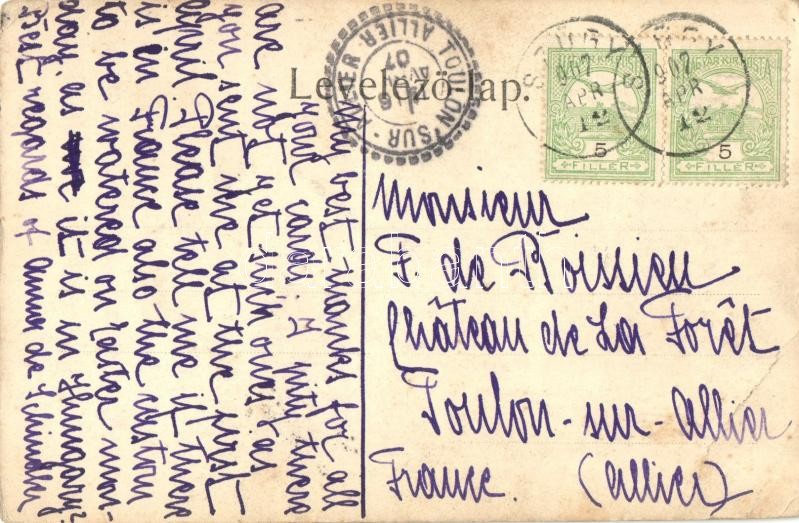 Levelező-lap.
TOULON SUR ALLIER
ALLIER
16
AVRIL
07
907
APR
12
MAGYAR KIR. POSTA
5
FILLER
907
APR
12
MAGYAR KIR. POSTA
5
FILLER
My best thanks for all
your cards. A pity there
are not yet such ones as
you sent me at the first
april. Please tell me if there
is in France also the custom
to be watered on Easter mon-
day as it is in Hungary?
Best regards of
Monsieur
F. de Boissieu
Château de La Forêt
Toulon-sur-Allier
France. (Allier)